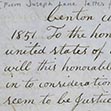 From Joseph Lane letters
Centon
1851 To the hon
united states of
will this honorable
in to consideration
seem to be Just